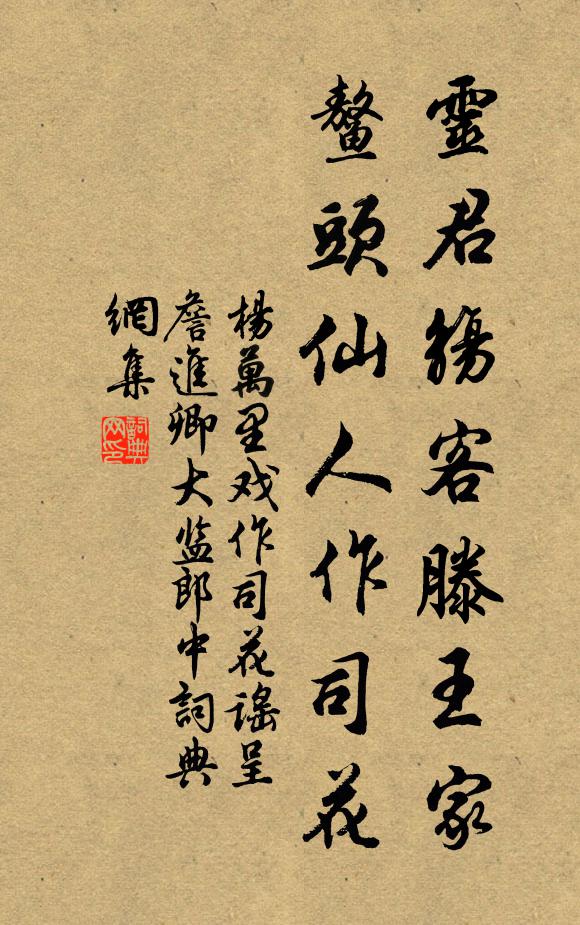 靈君觴客滕王家
鼇頭仙人作司花
楊萬里戏作司花謠呈
詹進卿大监郎中詞典
網集
詞典
网印